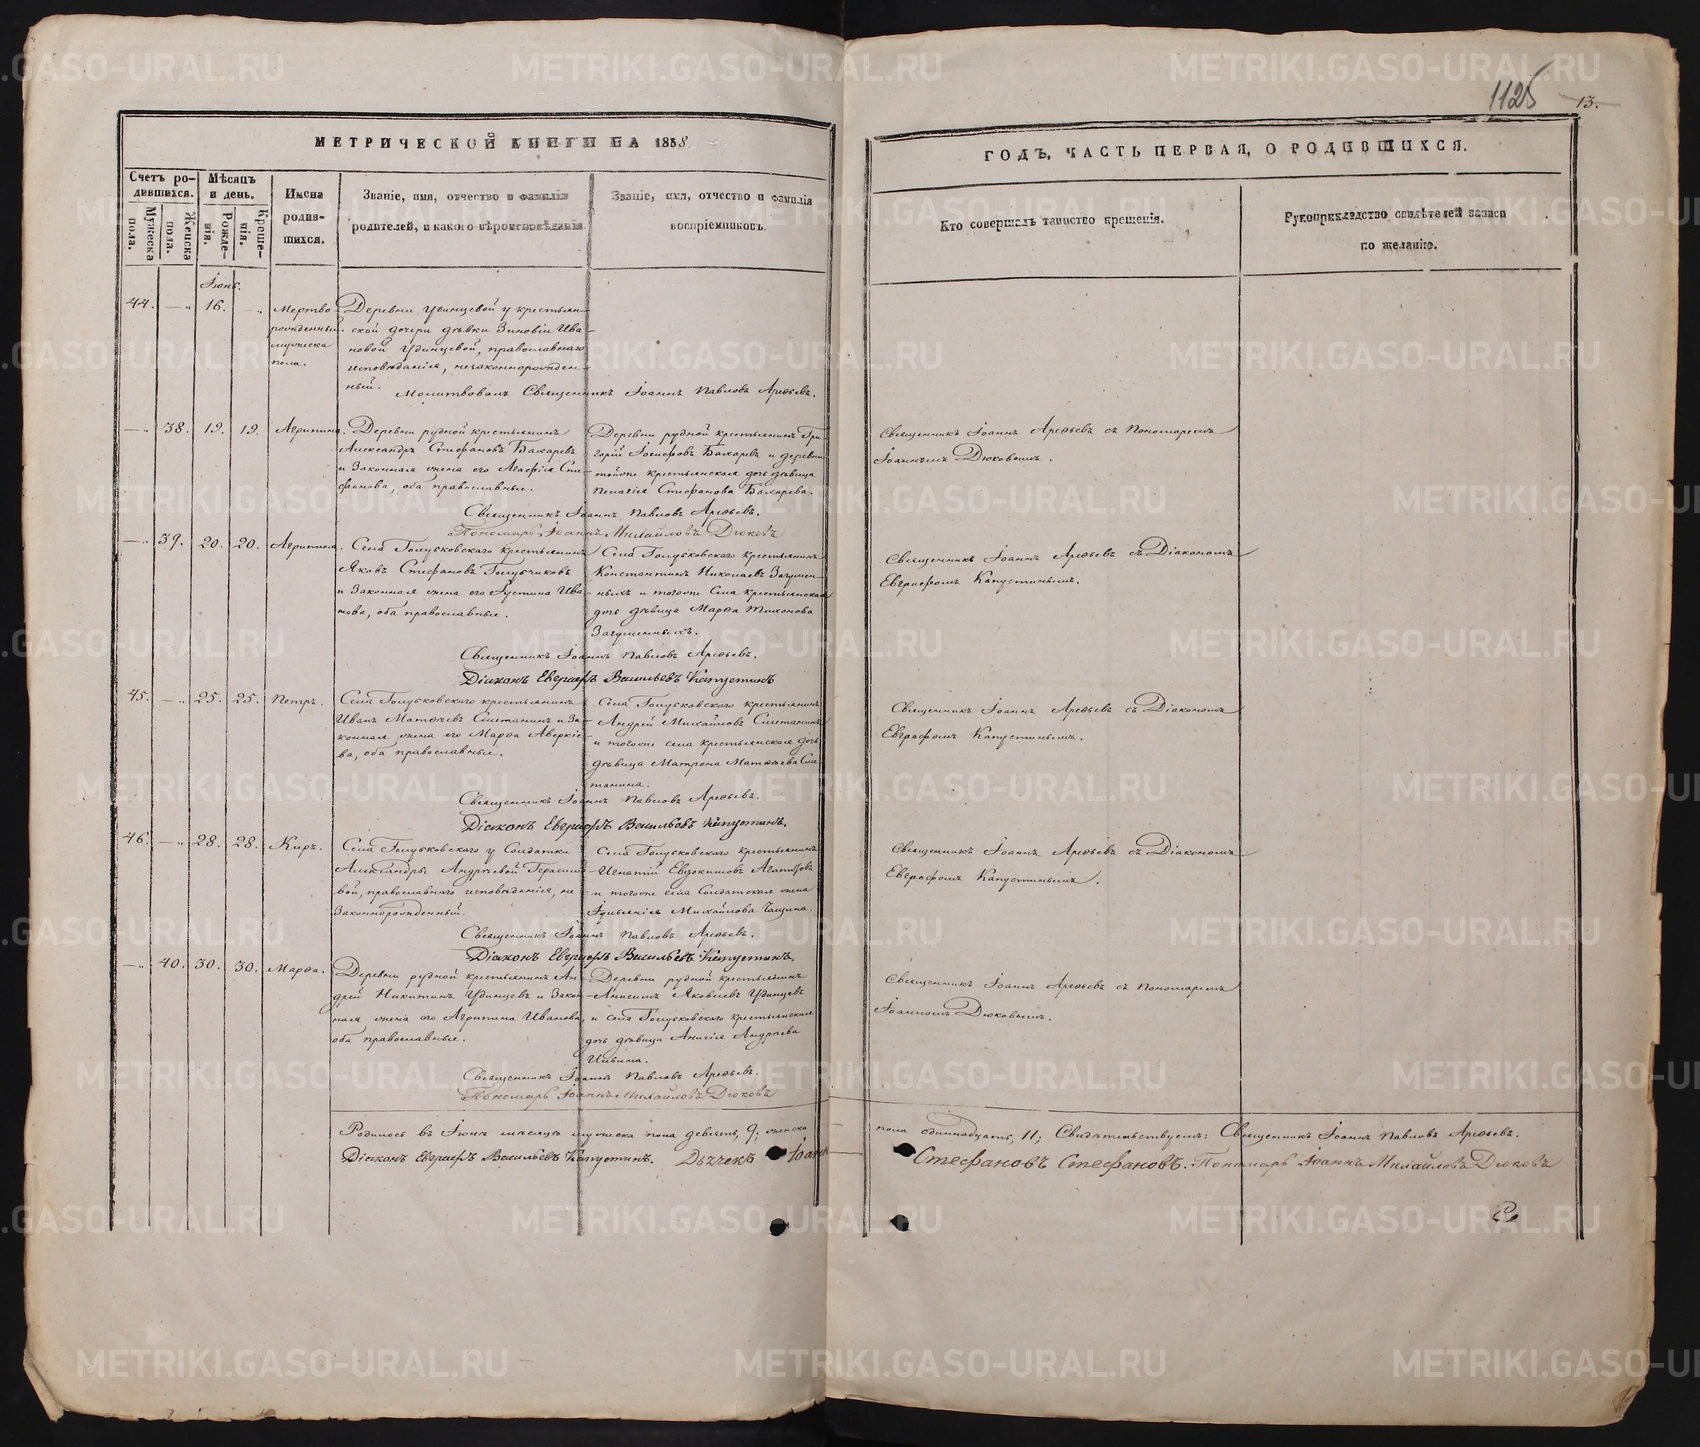 1125
13.
МЕТРИЧЕСКОЙ КНИГИ НА 1858
ГОДЪ, ЧАСТЬ ПЕРВАЯ, О РОДИВШИХСЯ.
Счетъ родившихся.
Мужеска пола.
Женска пола.
Мѣсяцъ и день.
Рожденія.
Крещенія.
Имена родившихся.
Званіе, имя, отчество и фамилія
родителей, и какого вѣроисповѣданія.
Званіе, имя, отчество и фамилія
воспріемниковъ.
Кто совершалъ таинство крещенія.
Рукоприкладство свидѣтелей записи
по желанію.
Іюнь.
44. 16.
Мертво-
рожденный
мужеска
пола.
Деревни Удинцевой у крестьян-
ской дочери дѣвки Зиновіи Ива-
новой Удинцевой, православнаго
исповѣданія, незаконнорожден-
ный.
Молитвовалъ Священникъ Іоаннъ Павловъ Арефьевъ.
38. 19. 19. Агрипина.
Деревни рудной крестьянинъ
Александръ Стефановъ Бахаревъ
и Законная жена его Агафія Сте-
фанова, оба православные.
Деревни рудной крестьянинъ Гри-
горій Іосифовъ Бахаревъ и деревни
тойже крестьянская дочь дѣвица
Пелагія Стефанова Бахарева.
Священникъ Іоаннъ Арефьевъ съ Пономаремъ
Іоанномъ Дюковымъ.
Священникъ Іоаннъ Павловъ Арефьевъ.
Пономарь Іоаннъ Михайловъ Дюковъ
39. 20. 20. Агрипина.
Села Голубковскаго крестьянинъ
Яковъ Стефановъ Голубчиковъ
и Законная жена его Іустина Ива-
нова, оба православные.
Села Голубковскаго крестьянинъ
Константинъ Николаевъ Загумен-
ныхъ и тогоже Села крестьянская
дочь дѣвица Марфа Тихонова
Загуменныхъ.
Священникъ Іоаннъ Арефьевъ съ Діакономъ
Евграфомъ Капустинымъ.
Священникъ Іоаннъ Павловъ Арефьевъ.
Діаконъ Евграфъ Васильевъ Капустинъ
45. 25. 25. Петръ.
Села Голубковскаго крестьянинъ
Иванъ Матфѣевъ Сметанинъ и За-
конная жена его Марфа Аверкіе-
ва, оба православные.
Села Голубковскаго крестьянинъ
Андрей Михайловъ Сметанинъ
и тогоже села крестьянская дочь
дѣвица Матрона Матфѣева Сме-
танина.
Священникъ Іоаннъ Арефьевъ съ Діакономъ
Евграфомъ Капустинымъ.
Священникъ Іоаннъ Павловъ Арефьевъ.
Діаконъ Евграфъ Васильевъ Капустинъ.
46. 28. 28. Киръ.
Села Голубковскаго у Солдатки
Александры Андреевой Герасимо-
вой, православнаго исповѣданія, не
Законнорожденный.
Села Голубковскаго крестьянинъ
Игнатій Евдокимовъ
и тогоже села Солдатская жена
Іуліанія Михайлова
Священникъ Іоаннъ Арефьевъ съ Діакономъ
Евграфомъ Капустинымъ.
Священникъ Іоаннъ Павловъ Арефьевъ.
Діаконъ Евграфъ Васильевъ Капустинъ.
40. 30. 30. Марфа.
Деревни рудной крестьянинъ Ан-
дрей Никитинъ Удинцевъ и Закон-
ная жена его Агрипина Иванова,
оба православные.
Деревни рудной крестьянинъ
Анисимъ Яковлевъ Удинцевъ
и села Голубковскаго крестьянская
дочь дѣвица Анисія Андреева
Ильина.
Священникъ Іоаннъ Арефьевъ съ Пономаремъ
Іоанномъ Дюковымъ.
Священникъ Іоаннъ Павловъ Арефьевъ.
Пономарь Іоаннъ Михайловъ Дюковъ
Родилось въ Іюнѣ мѣсяцѣ мужеска пола девять, 9; женска пола одиннадцать, 11; Свидѣтельствуемъ: Священникъ Іоаннъ Павловъ Арефьевъ.
Діаконъ Евграфъ Васильевъ Капустинъ. Дьячекъ Іоаннъ Стефановъ Стефановъ. Пономарь Іоаннъ Михайловъ Дюковъ
METRIKI.GASO-URAL.RU